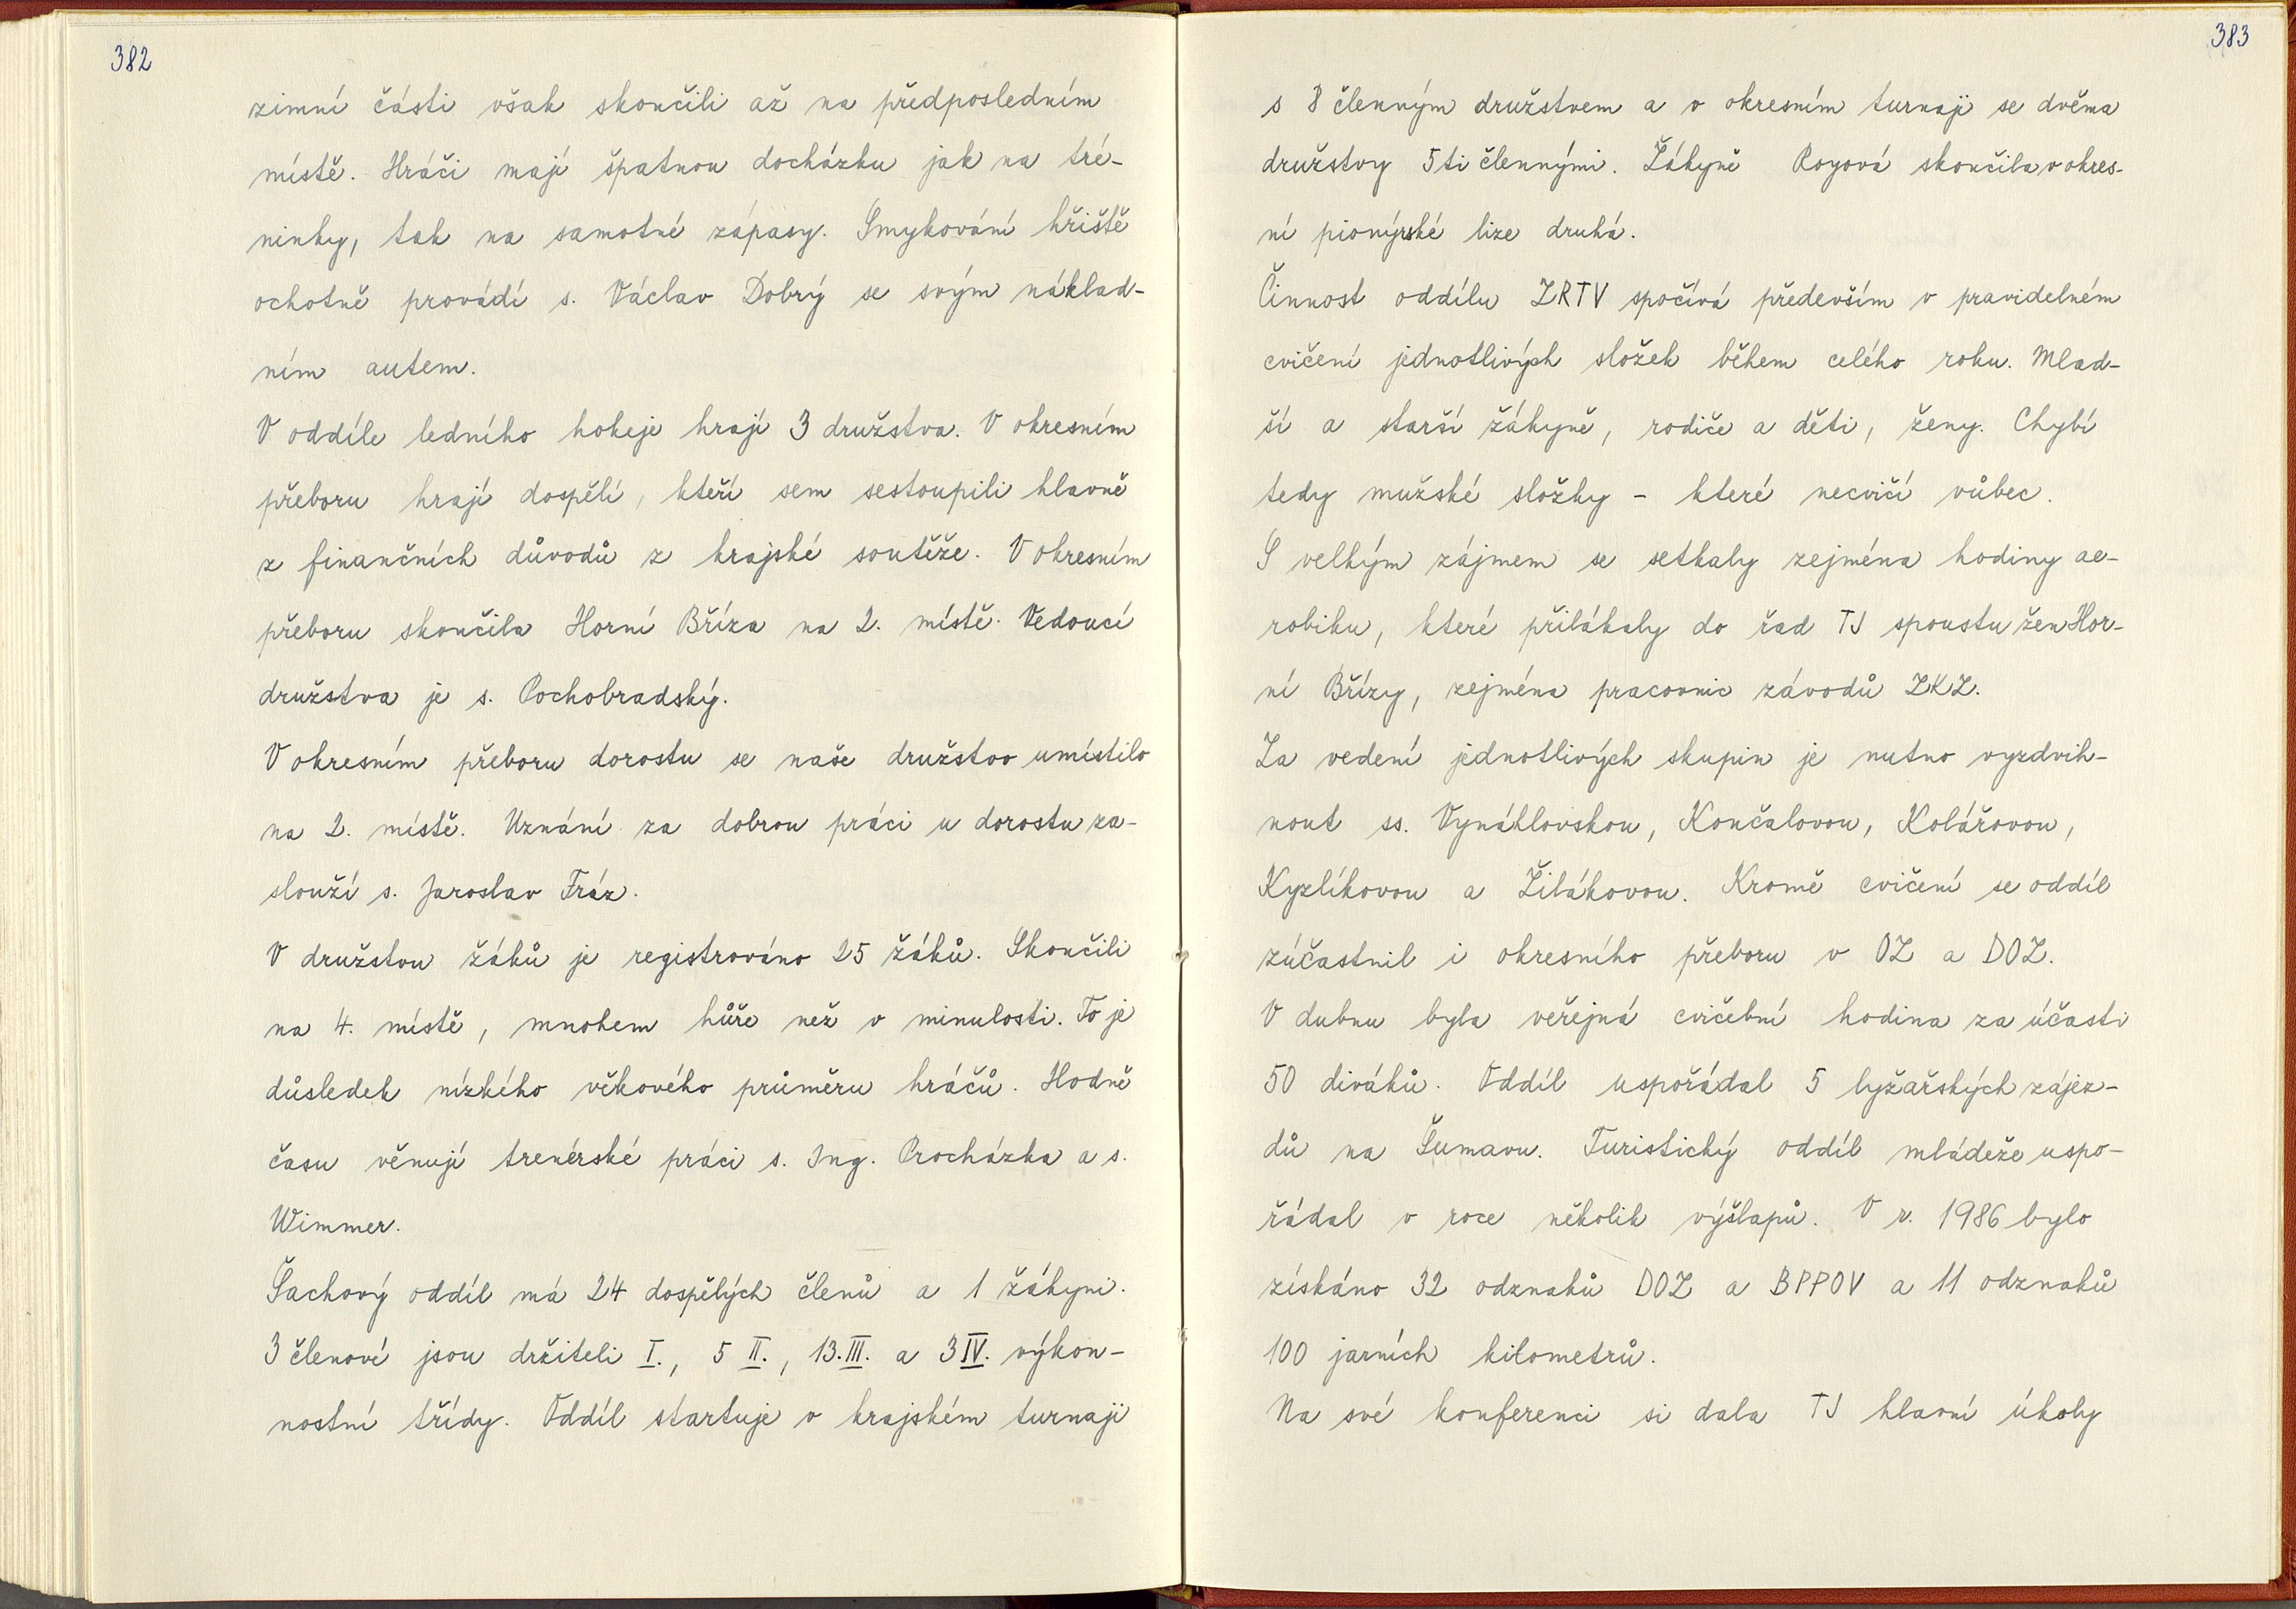 382
zimní části však skončili až na předposledním
místě. Hráči mají špatnou docházku jak na tré-
ninky, tak na samotné zápasy. Smykování hřiště
ochotně provádí s. Václav Dobrý se svým náklad-
ním autem.
V oddíle ledního hokeje hrají 3 družstva. V okresním
přeboru hrají dospělí, kteří sem sestoupili hlavně
z finančních důvodů z krajské soutěže. V okresním
přeboru skončila Horní Bříza na 2. místě. Vedoucí
družstva je s. Pochobradský.
V okresním přeboru dorostu se naše družstvo umístilo
na 2. místě. Uznání za dobrou práci u dorostu za-
slouží s. Jaroslav Fráz.
V družstvu žáků je registrováno 25 žáků. Skončili
na 4. místě, mnohem hůře než v minulosti. To je
důsledek nízkého věkového průměru hráčů. Hodně
času věnují trenérské práci s. Ing. Procházka a s.
Wimmer.
Šachový oddíl má 24 dospělých členů a 1 žákyni.
3 členové jsou držiteli I., 5 II., 13. III. a 3 IV. výkon-
nostní třídy. Oddíl startuje v krajském turnaji
383
s 8 členným družstvem a v okresním turnaji se dvěma
družstvy 5ti člennými. Žákyně Rogová skončila v okres-
ní pionýrské lize druhá.
Činnost oddílu ZRTV spočívá především v pravidelném
cvičení jednotlivých složek během celého roku. Mlad-
ší a starší žákyně, rodiče a děti, ženy. Chybí
tedy mužské složky - které necvičí vůbec.
S velkým zájmem se setkaly zejména hodiny ae-
robiku, které přilákaly do řad TJ spoustu žen Hor-
ní Břízy, zejména pracovnic závodů ZKZ.
Za vedení jednotlivých skupin je nutno vyzdvih-
nout ss. Vynáhlovskou, Končalovou, Kolářovou,
Kyzlíkovou a Žilákovou. Kromě cvičení se oddíl
zúčastnil i okresního přeboru v OZ a DOZ.
V dubnu byla veřejná cvičební hodina za účasti
50 diváků. Oddíl uspořádal 5 lyžařských zájez-
dů na Šumavu. Turistický oddíl mládeže uspo-
řádal v roce několik výšlapů. V r. 1986 bylo
získáno 32 odznaků DOZ a BPPOV a 11 odznaků
100 jarních kilometrů.
Na své konferenci si dala TJ hlavní úkoly